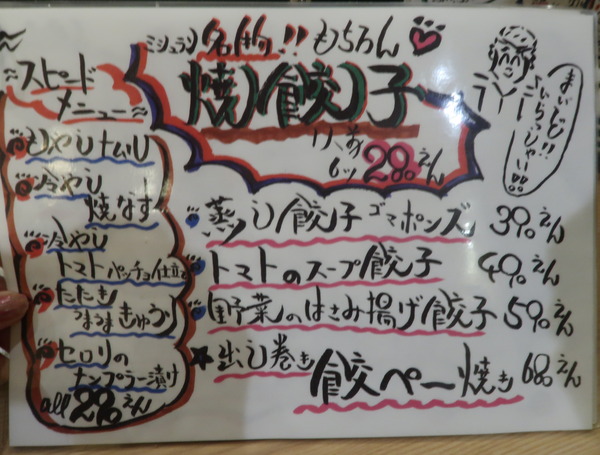 スピード
メニュー
もやしナムル
冷やし
焼なす
冷やし
トマト カルパッチョ仕立
たたき
うまうまきゅうり
セロリの
ナンプラー漬け
all 290えん
ミシュラン 名物!! もちろん
焼り餃子
1人前
6ツ 290えん
まいど!!
いらっしゃい!!
蒸し餃子 ゴマポンズ 390えん
トマトのスープ餃子 490えん
野菜のはさみ揚げ餃子 590えん
出し巻き 餃ペー焼き 680えん